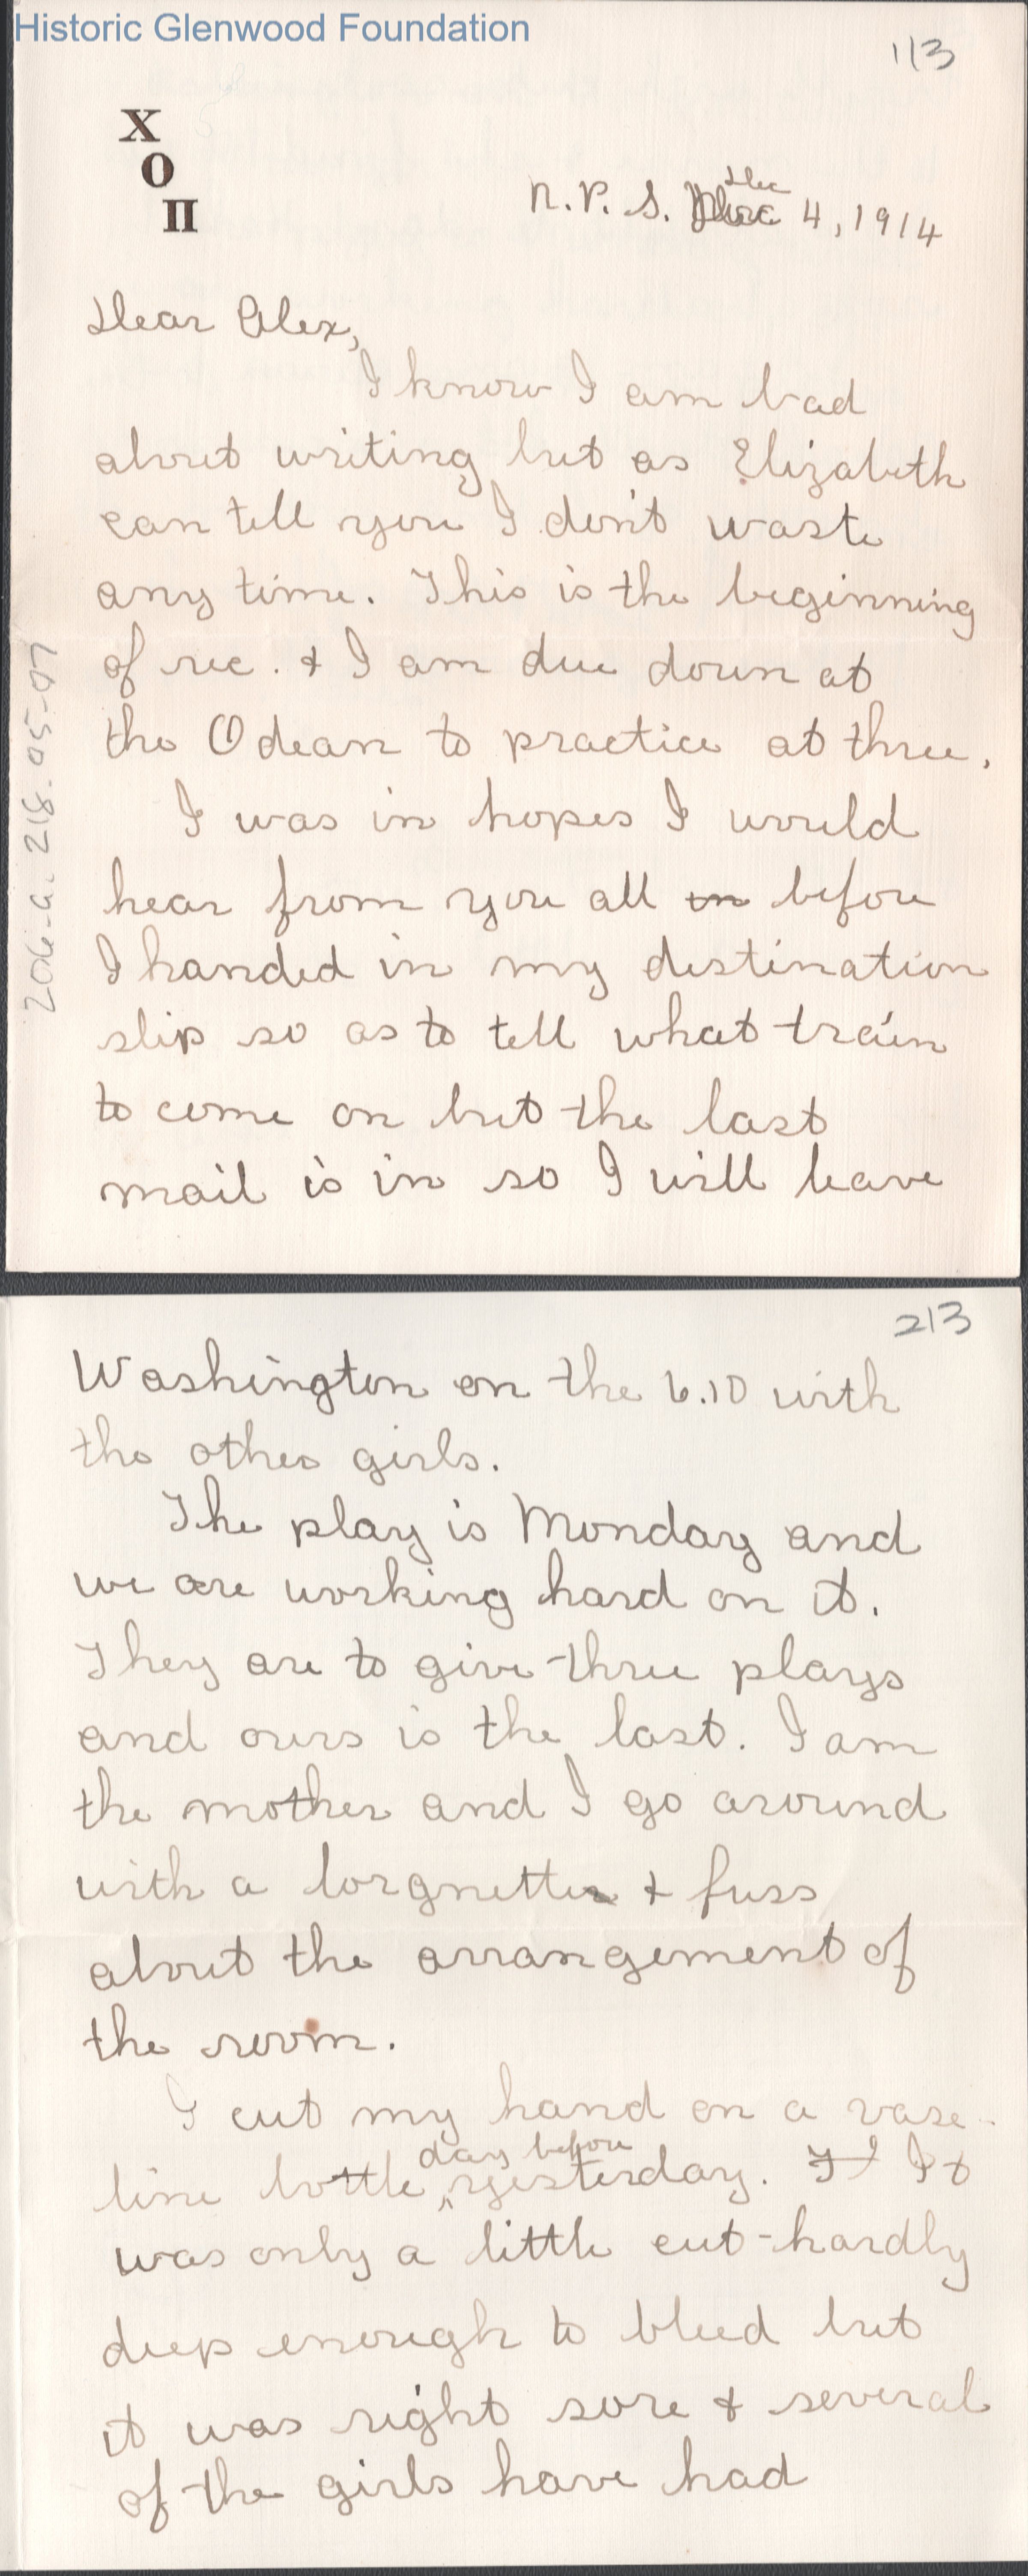 Historic Glenwood Foundation
1/3
X
O
Π
N.P.S. Dec 4, 1914
Dear Alex,
I know I am bad
about writing but as Elizabeth
can tell you I don't waste
any time. This is the beginning
of rec. & I am due down at
the Odean to practice at three.
I was in hopes I would
hear from you all in before
I handed in my destination
slip so as to tell what train
to come on but the last
mail is in so I will leave
206-a.218.05-07
2/3
Washington on the 6.10 with
the other girls.
The play is Monday and
we are working hard on it.
They are to give three plays
and ours is the last. I am
the mother and I go around
with a lorgnette & fuss
about the arrangement of
the room.
I cut my hand on a vase-
line bottle day before yesterday. It
was only a little cut-hardly
deep enough to bleed but
it was right sore & several
of the girls have had